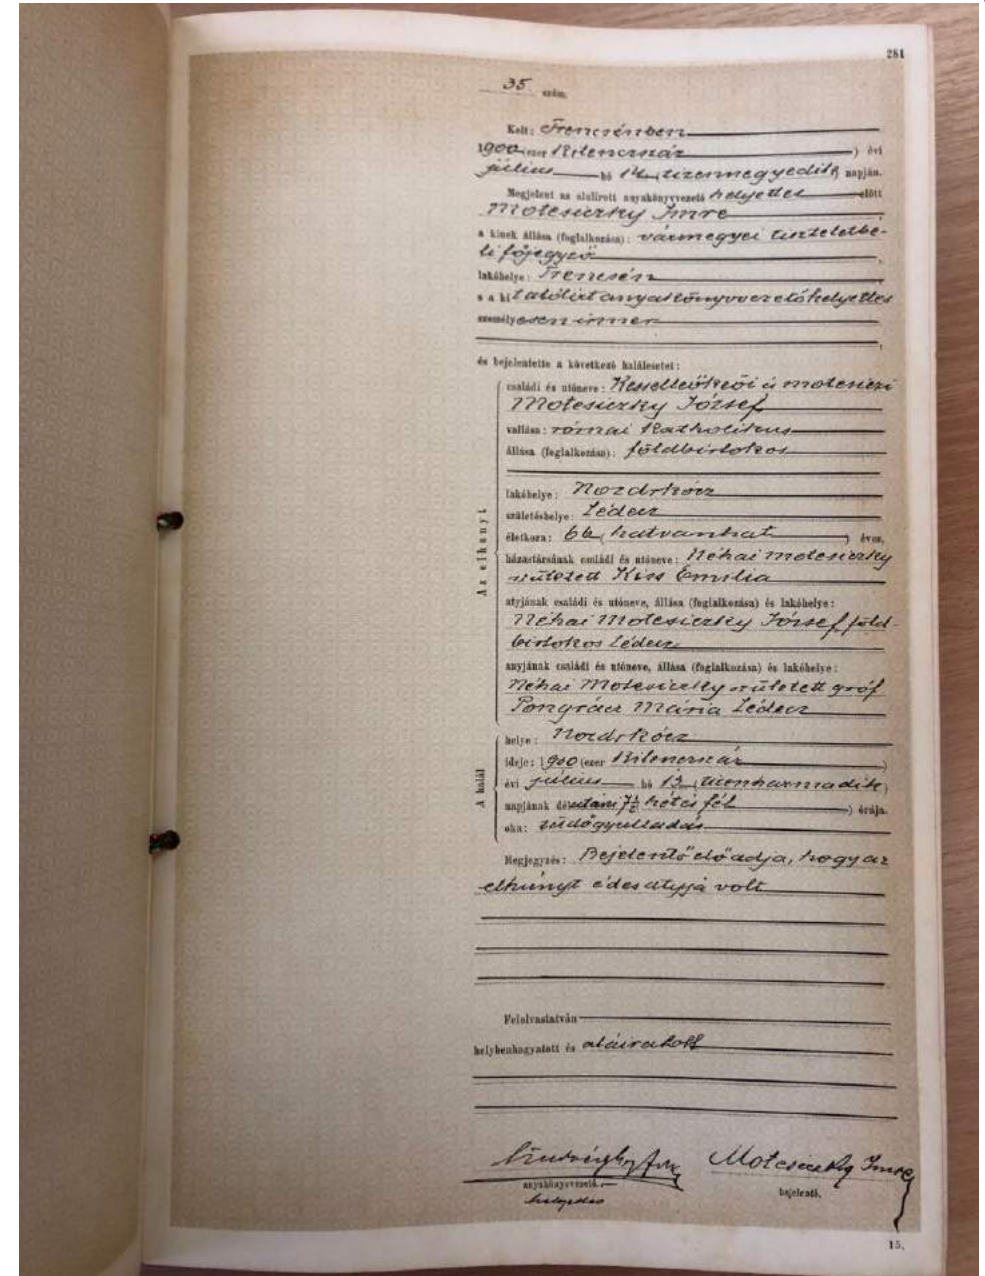 281
35 szám.
Kelt: Trencsénben
1900 (ezer kilencszáz ) évi
július hó 14 (tizennegyedik) napján.
Megjelent az alulirott anyakönyvvezető helyettes előtt
Motesiczky Imre
a kinek állása (foglalkozása): vármegyei tiszteletbe-
li főjegyző
lakóhelye: Trencsén
s a kit alólirt anyakönyvvezető helyettes
személyesen ismer
és bejelentette a következő halálesetet:
Az elhunyt
családi és utóneve: Kesselleőkeői és motesiczi
Motesiczky József
vallása: római katholikus
állása (foglalkozása): földbirtokos
lakóhelye: Nozdrkócz
születéshelye: Lédecz
életkora: 66 (hatvanhat ) éves,
házastársának családi és utóneve: Néhai Motesiczky
született Kiss Emilia
atyjának családi és utóneve, állása (foglalkozása) és lakóhelye:
Néhai Motesiczky József, föld-
birtokos Lédecz
anyjának családi és utóneve, állása (foglalkozása) és lakóhelye:
Néhai Motesiczky született gróf
Pongrácz Mária Lédecz
A halál
helye: Nozdrkócz
ideje: 1900 (ezer kilencszáz )
évi július hó 13 (tizenharmadik)
napjának délutáni 7½ (hét és fél ) órája.
oka: tüdőgyulladás
Megjegyzés: Bejelentő előadja, hogy az
elhunyt édes atyja volt
Felolvastatván
helybenhagyatott és aláiratott
anyakönyvvezető.
helyettes
Motesiczky Imre
bejelentő.
15.